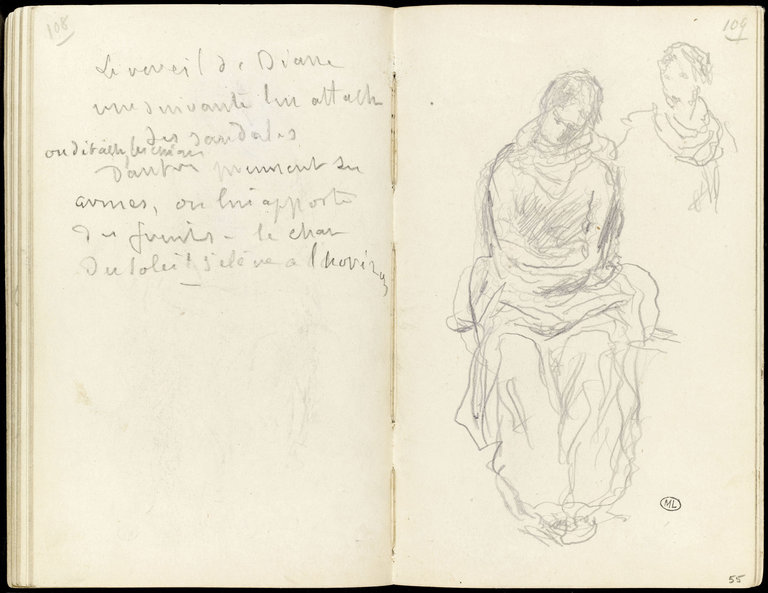 108
Le reveil de Diane
une suivante lui attache
ses sandales
ou ditach les chiens
D'autres prennent ses
armes, on lui apporte
des fruits - le char
Du soleil s'élève a l'horizon
109
ML
55